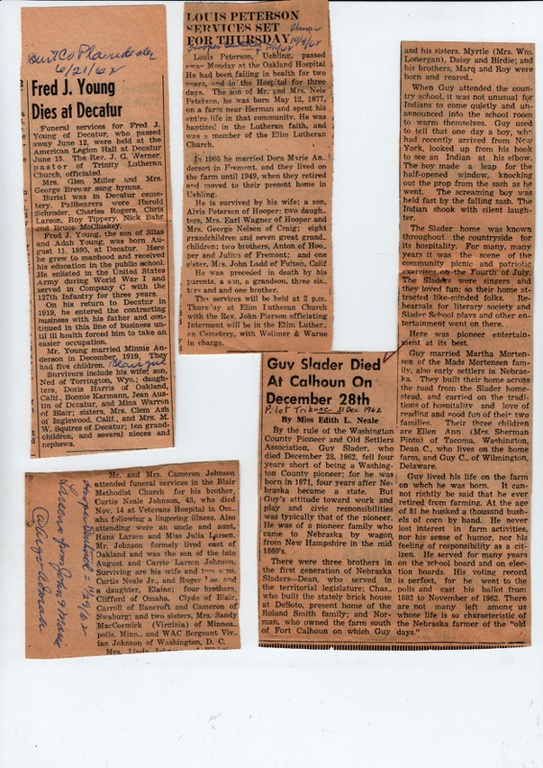 Burt Co Plaindealer
6/21/62
Fred J. Young
Dies at Decatur
Funeral services for Fred J.
Young of Decatur, who passed
away June 12, were held at the
American Legion Hall at Decatur
June 15. The Rev. J. G. Werner,
pastor of Trinity Lutheran
Church, officiated.
Mrs. Glen Miller and Mrs.
George Brewer sang hymns.
Burial was in Decatur ceme-
tery. Pallbearers were Harold
Schroder, Charles Rogers, Chris
Larson, Roy Tippery, Nick Bahr
and Bruce McCluskey.
Fred J. Young, the son of Silas
and Adah Young, was born Aug-
ust 11, 1895, at Decatur. Here
he grew to manhood and received
his education in the public school.
He enlisted in the United States
Army during World War I and
served in Company C with the
127th Infantry for three years.
On his return to Decatur in
1919, he entered the contracting
business with his father and con-
tinued in this line of business un-
til ill health forced him to take an
easier occupation.
Mr. Young married Minnie An-
derson in December, 1919. They
had five children.
Survivors include his wife; son,
Ned of Torrington, Wyo.; daugh-
ters, Doris Harris of Oakland,
Calif., Bonnie Karmann, Jean Aus-
tin of Decatur, and Mina Warren
of Blair; sisters, Mrs. Clem Ash
of Inglewood, Calif., and Mrs. M.
W. Squires of Decatur; ten grand-
children, and several nieces and
nephews.
LOUIS PETERSON
SERVICES SET
FOR THURSDAY
Louis Peterson, Uehling, passed
away Monday at the Oakland Hospital
He had been failing in health for two
years, and in the Hospital for three
days. The son of Mr. and Mrs. Nels
Peterson, he was born May 12, 1877,
on a farm near Herman and spent his
entire life in that community. He was
baptized in the Lutheran faith, and
was a member of the Elim Lutheran
Church.
In 1905 he married Dora Marie An-
derson in Fremont, and they lived on
the farm until 1949, when they retired
and moved to their present home in
Uehling.
He is survived by his wife; a son,
Alvis Petersen of Hooper; two daugh-
ters, Mrs. Earl Wagner of Hooper and
Mrs. George Nelson of Craig; eight
grandchildren and seven great grand
children; two brothers, Anton of Hoo-
per and Julius of Fremont; and one
sister, Mrs. John Ladd of Fulton, Calif
He was preceded in death by his
parents, a son, a grandson, three sis-
ters and one brother.
The services will be held at 2 p.m.
Thursday at Elim Lutheran Church
with the Rev. John Pierson officiating
Interment will be in the Elim Luther-
an Cemetery, with Wolimer & Warne
in charge.
Mr. and Mrs. Cameron Johnson
attended funeral services in the Blair
Methodist Church for his brother,
Curtis Neale Johnson, 43, who died
Nov. 14 at Veterans Hospital in Om-
aha following a lingering illness. Also
attending were an uncle and aunt,
Hans Larson and Miss Julia Larson.
Mr. Johnson formely lived east of
Oakland and was the son of the late
August and Carrie Larson Johnson.
Surviving are his wife and two sons,
Curtis Neale Jr., and Roger Lee and
a daughter, Elaine; four brothers,
Clifford of Omaha, Clyde of Blair,
Carroll of Bancroft and Cameron of
Swaburg; and two sisters, Mrs. Sandy
MacCormick (Virginia) of Minnea-
polis, Minn., and WAC Sergeant Viv-
ian Johnson of Washington, D. C.
Guy Slader Died
At Calhoun On
December 28th
Pilot Tribune 31 Dec 1962
By Miss Edith L. Neale
By the rule of the Washington
County Pioneer and Old Settlers
Association, Guy Slader, who
died December 28, 1962, fell four
years short of being a Washing-
ton County pioneer; for he was
born in 1871, four years after Ne-
braska became a state. But
Guy's attitude toward work and
play and civic responsibilities
was typically that of the pioneer.
He was of a pioneer family who
came to Nebraska by wagon
from New Hampshire in the mid
1860's.
There were three brothers in
the first generation of Nebraska
Sladers—Dean, who served in
the territorial legislature; Chas.,
who built the stately brick house
at DeSoto, present home of the
Roland Smith family; and Nor-
man, who owned the farm south
of Fort Calhoun on which Guy
and his sisters, Myrtle (Mrs. Wm.
Lonergan), Daisy and Birdie; and
his brothers, Marq and Roy were
born and reared.
When Guy attended the coun-
try school, it was not unusual for
Indians to come quietly and un-
announced into the school room
to warm themselves. Guy used
to tell that one day a boy, who
had recently arrived from New
York, looked up from his book
to see an Indian at his elbow.
The boy made a leap for the
half-opened window, knocking
out the prop from the sash as he
went. The screaming boy was
held fast by the falling sash. The
Indian shook with silent laugh-
ter.
The Slader home was known
throughout the countryside for
its hospitality. For many, many
years it was the scene of the
community picnic and patriotic
exercises on the Fourth of July.
The Sladers were singers and
they loved fun; so their home at-
tracted like-minded folks. Re-
hearsals for literary society and
Slader School plays and other en-
tertainment went on there.
Here was pioneer entertain-
ment at its best.
Guy married Martha Morten-
sen of the Mads Mortensen fam-
ily, also early settlers in Nebras-
ka. They built their home across
the road from the Slader home-
stead, and carried on the tradit-
ions of hospitality and love of
reading and good fun of their two
families. Their three children
are Ellen Ann (Mrs. Sherman
Pinto) of Tacoma, Washington,
Dean C., who lives on the home
farm, and Guy C., of Wilmington,
Delaware.
Guy lived his life on the farm
on which he was born. It can-
not rightly be said that he ever
retired from farming. At the age
of 81 he husked a thousand bush-
els of corn by hand. He never
lost interest in farm activities,
nor his sense of humor, nor his
feeling of responsibility as a cit-
izen. He served for many years
on the school board and on elec-
tion boards. His voting record
is perfect, for he went to the
polls and cast his ballot from
1892 to November of 1962. There
are not many left among us
whose life is so characteristic of
the Nebraska farmer of the "old
days."